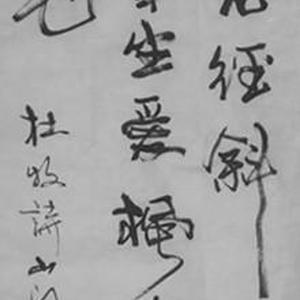 徑斜
坐愛楓
杜牧詩山